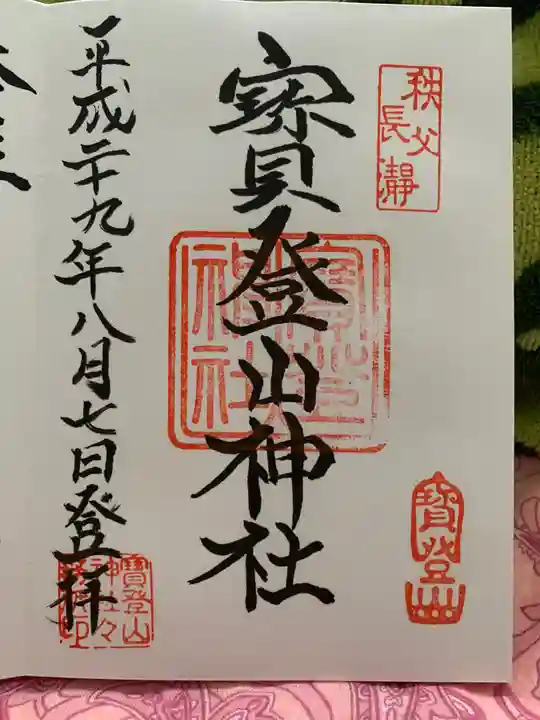 秩父
長瀞
寳登山神社
寳登山
平成二十九年八月七日登拝
寳登山
神社々